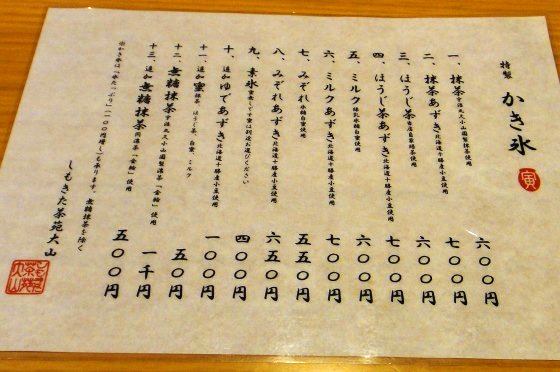 特製 かき氷
寅
一、抹茶 宇治丸久小山園製抹茶使用 六〇〇円
二、抹茶あずき 北海道十勝産小豆使用 七〇〇円
三、ほうじ茶 当店自家焙茶使用 六〇〇円
四、ほうじ茶あずき 北海道十勝産小豆使用 七〇〇円
五、ミルク 練乳氷糖自蜜使用 六〇〇円
六、ミルクあずき 北海道十勝産小豆使用 七〇〇円
七、みぞれ 氷糖自蜜使用 五五〇円
八、みぞれあずき 北海道十勝産小豆使用 六五〇円
九、素氷 蜜無しです蜜は別途お選びください 四〇〇円
十、追加ゆであずき 北海道十勝産小豆使用 一〇〇円
十一、追加蜜 抹茶、ほうじ茶、自蜜、ミルク 五〇円
十二、無糖抹茶 宇治丸久小山園製濃茶「金輪」使用 一千円
十三、追加無糖抹茶 同濃茶「金輪」使用 五〇〇円
※かき氷は「氷たっぷり」一〇〇円増しも承ります。無糖抹茶を除く
しもきた茶苑大山